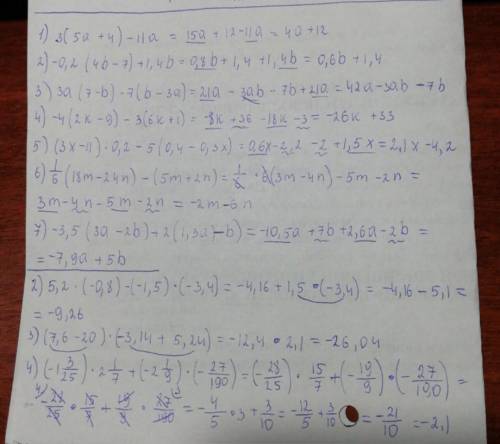 1) 3(5a+4)-11a = 15a+12-11a = 4a+12
2) -0,2(4b-7)+1,4b = 0,8b+1,4+1,4b = 0,6b+1,4
3) 3a(7-b)-7(b-3a) = 21a-3ab-7b+21a = 42a-3ab-7b
4) -4(2k-9)-3(6k+1) = -8k+36-18k-3 = -26k+33
5) (3x-11)·0,2-5(0,4-0,3x) = 0,6x-2,2-2+1,5x = 2,1x-4,2
6) 1/6(18m-24n)-(5m+2n) = 1/6·6(3m-4n)-5m-2n =
3m-4n-5m-2n = -2m-6n
7) -3,5(3a-2b)+2(1,3a-b) = -10,5a+7b+2,6a-2b =
= -7,9a+5b
2) 5,2·(-0,8)-(-1,5)·(-3,4) = -4,16+1,5·(-3,4) = -4,16-5,1 =
= -9,26
3) (7,6-20)·(-3,14+5,24) = -12,4·2,1 = -26,04
4) (-1 3/25)·2 1/7+(-2 1/9)·(-27/190) = (-28/25)·15/7+(-19/9)·(-27/190) =
= -28/25·15/7+19/9·27/190 = -4/5·3+3/10 = -12/5+3/10 = -21/10 = -2,1